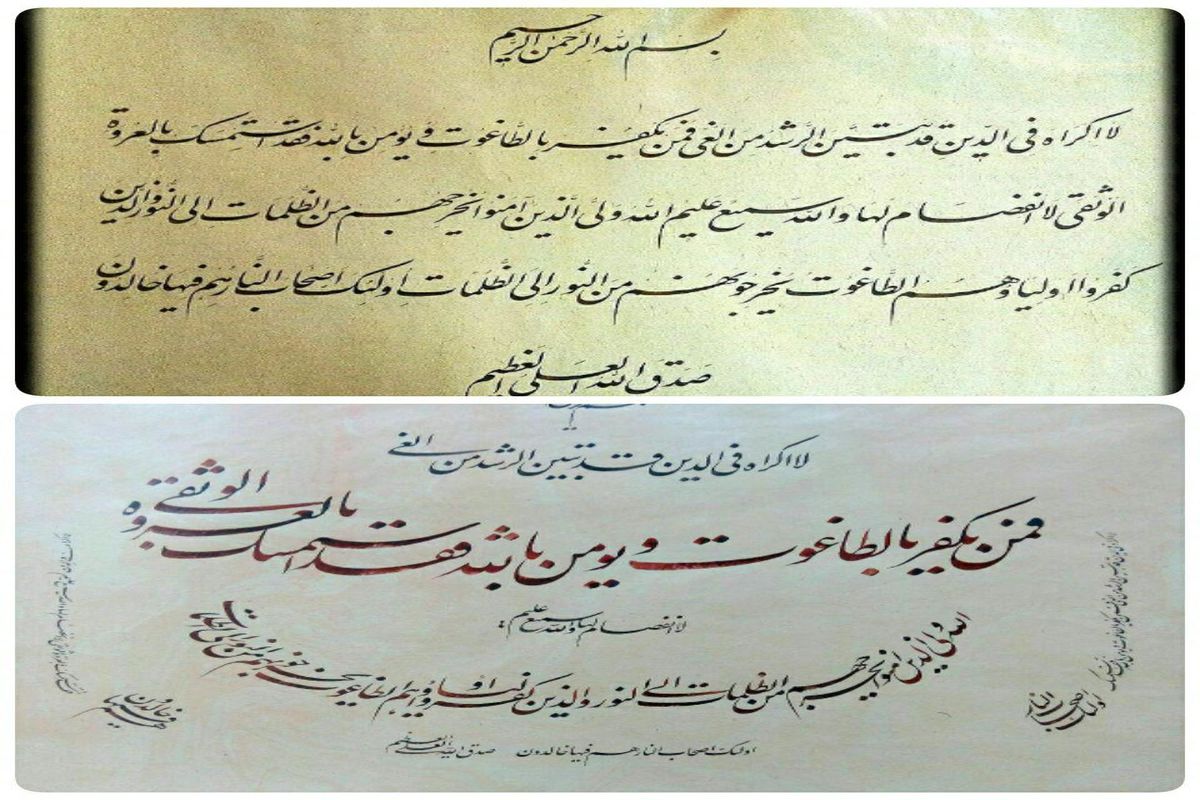 بسم الله الرحمن الرحیم
لا اکراه فی الدین قد تبین الرشد من الغی فمن یکفر بالطاغوت و یومن بالله فقد استمسک بالعروة
الوثقی لا انفصام لها والله سمیع علیم الله ولی الذین امنوا یخرجهم من الظلمات الی النور والذین
کفروا اولیاوهم الطاغوت یخرجونهم من النور الی الظلمات اولئک اصحاب النار هم فیها خالدون
صدق الله العلی العظیم
لا اکراه فی الدین قد تبین الرشد من الغی
فمن یکفر بالطاغوت و یومن بالله فقد استمسک بالعروة الوثقی
لا انفصام لها والله سمیع علیم
الله ولی الذین امنوا یخرجهم من الظلمات الی النور والذین کفروا اولیاوهم الطاغوت یخرجونهم من النور الی الظلمات
اولئک اصحاب النار هم فیها خالدون صدق الله العلی العظیم
اولئک اصحاب النار
هم فیها خالدون